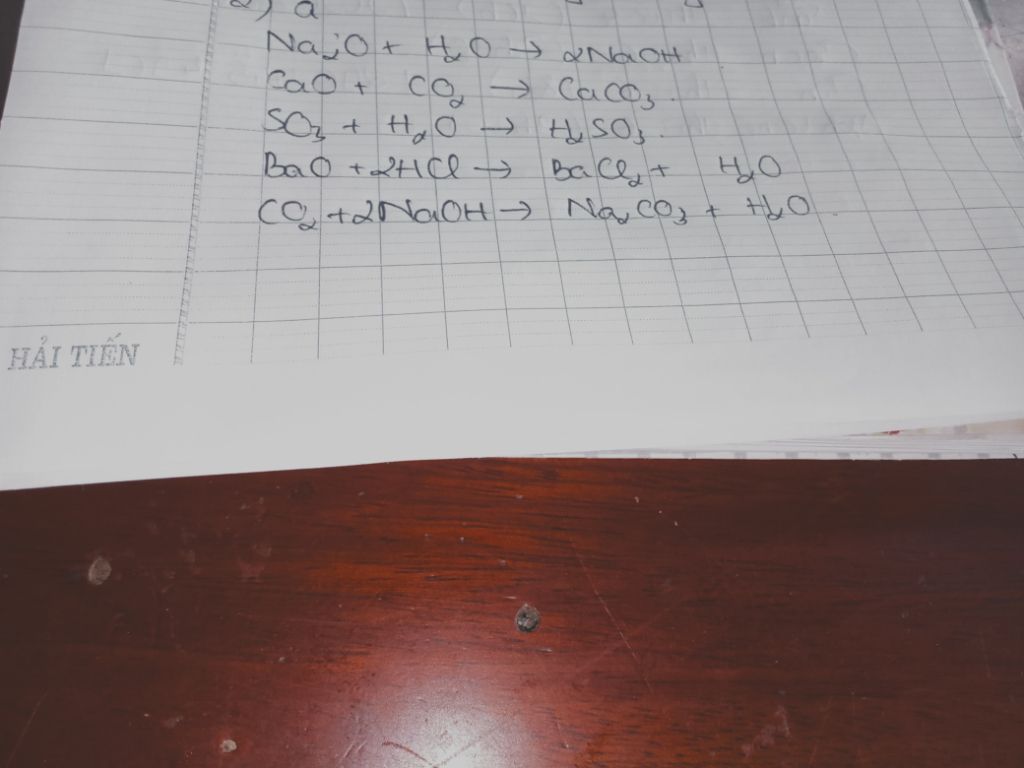 2) a
Na₂O + H₂O → 2NaOH
CaO + CO₂ → CaCO₃.
SO₃ + H₂O → H₂SO₃.
BaO + 2HCl → BaCl₂ + H₂O
CO₂ + 2NaOH → Na₂CO₃ + H₂O.
HẢI TIẾN